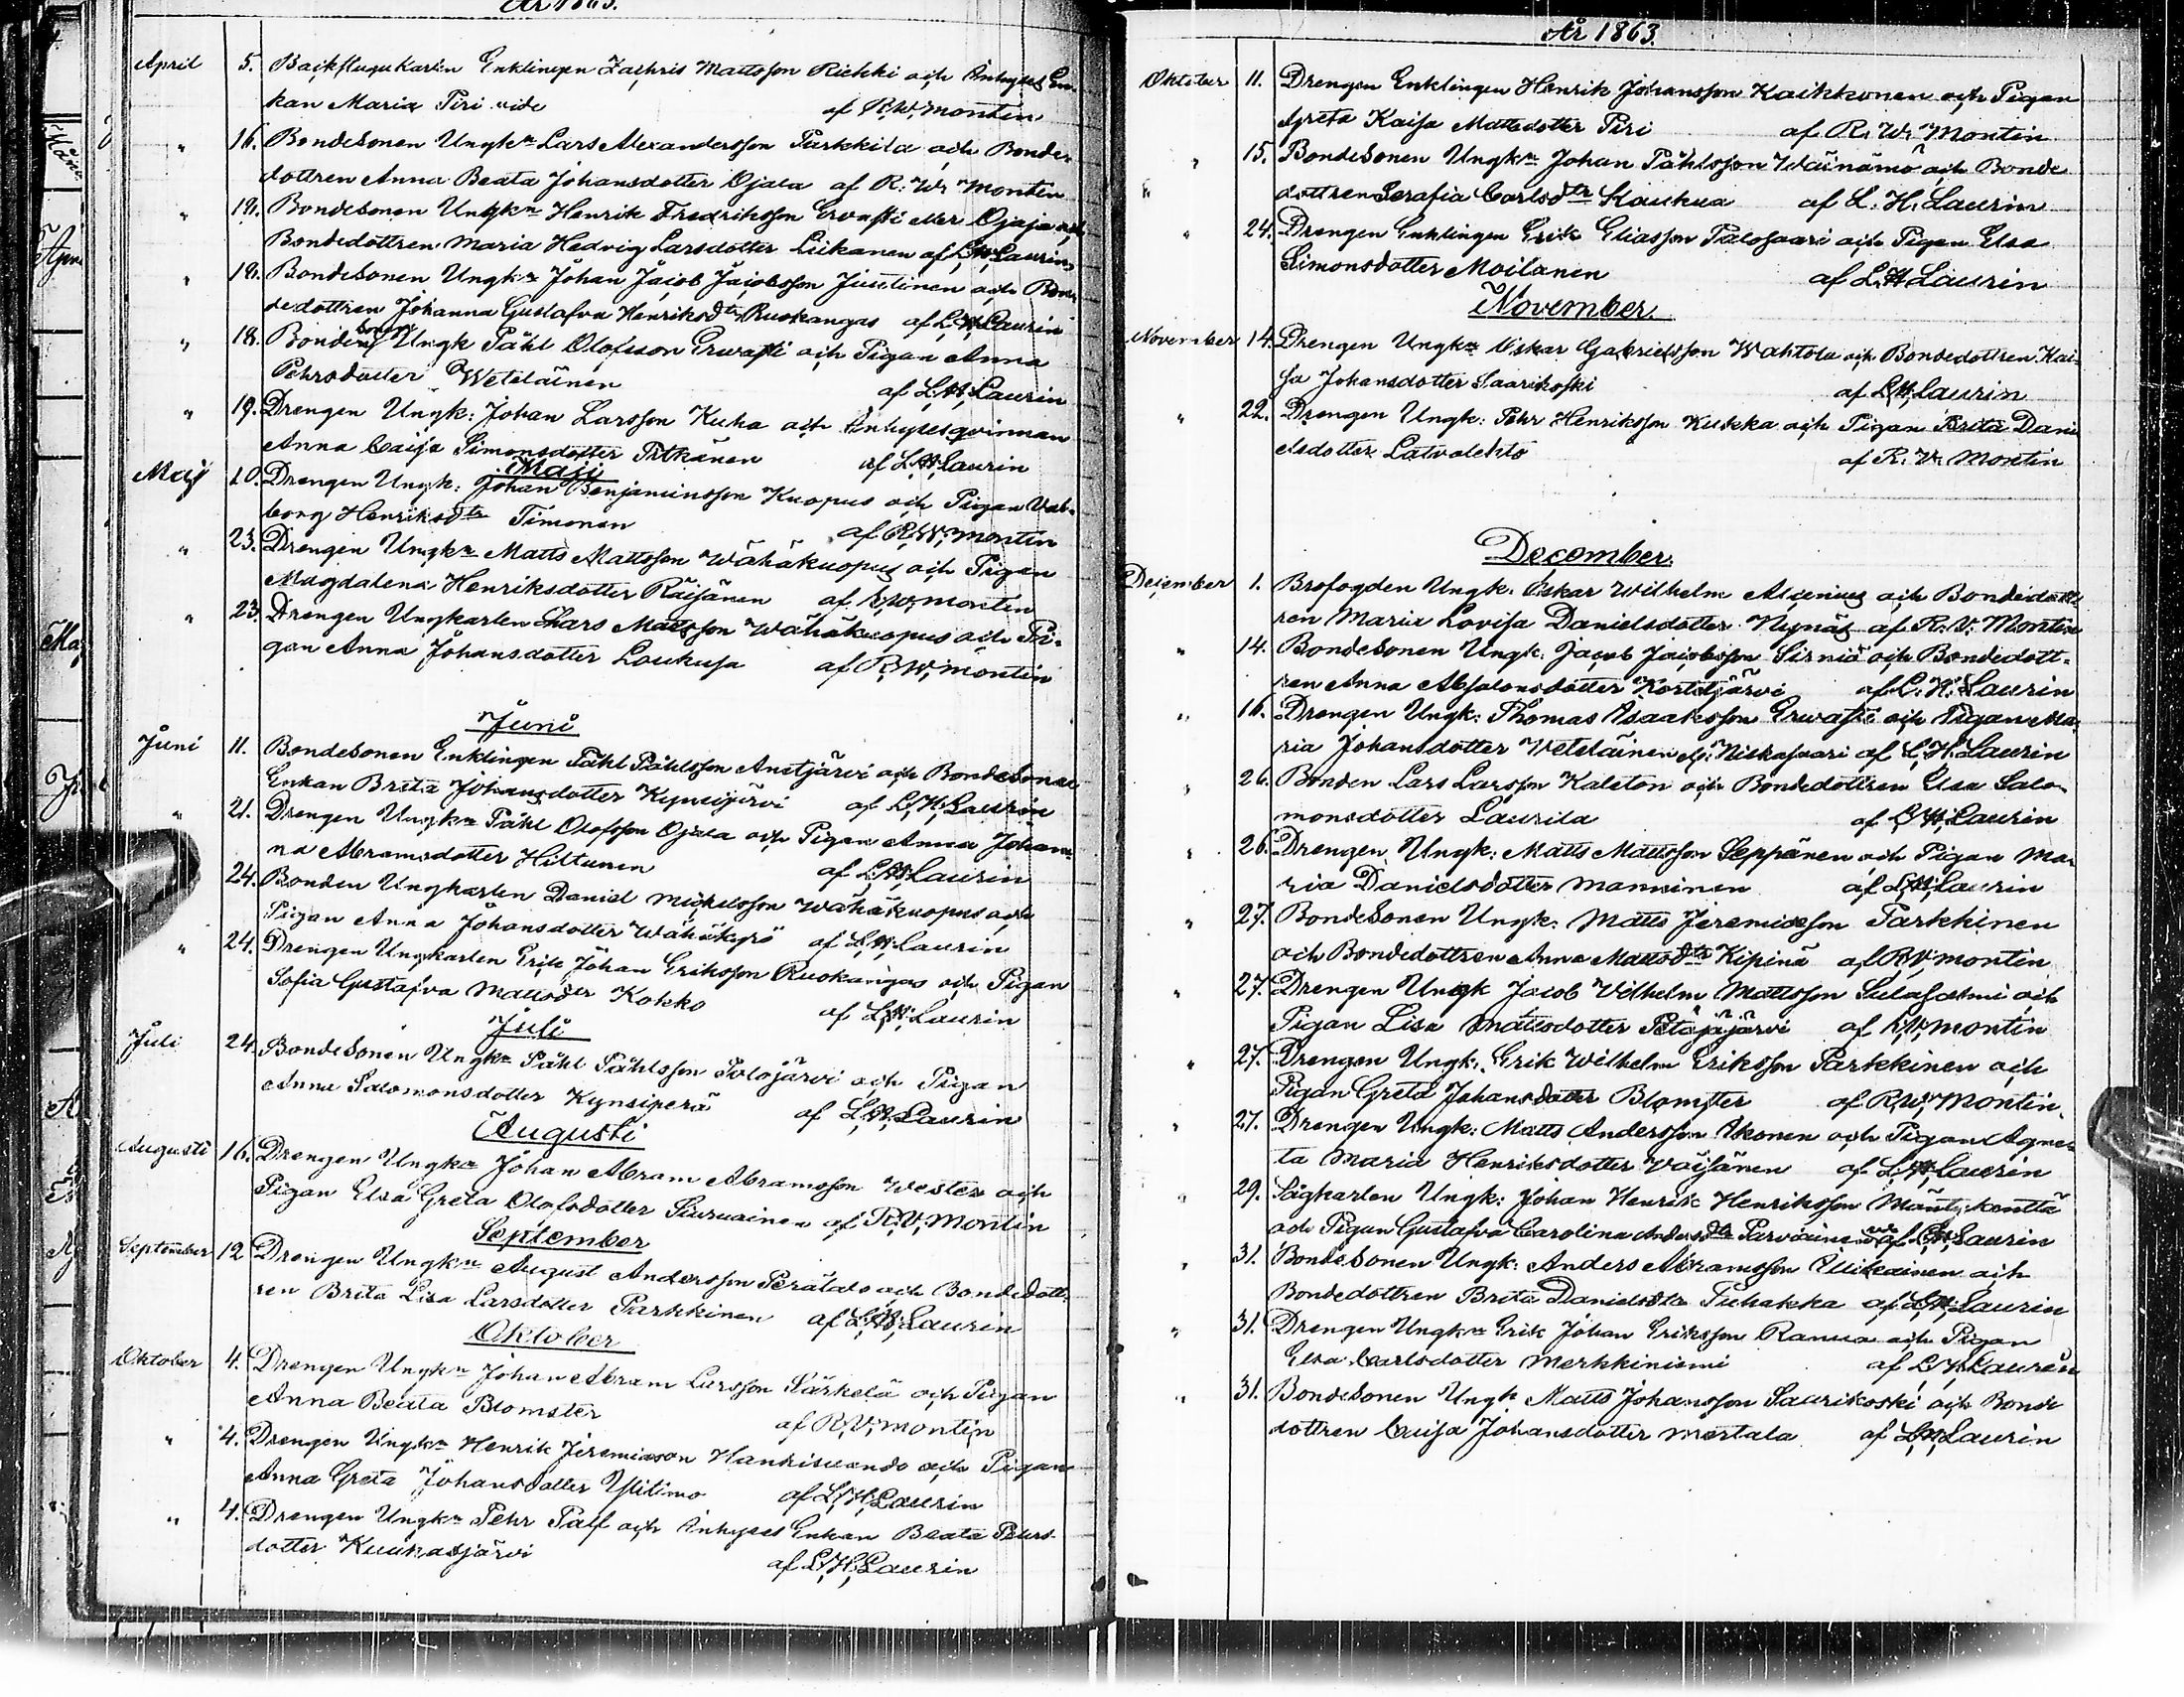 År 1863.
April 5. Backstugukarlen Enklingen Zachris Mattsson Riekki och Inhyses En-
kan Maria Piri af R.W. Montin
" 16. Bondesonen Ungkn Lars Alexandersson Parkkila och Bonde-
dottren Anna Beata Johansdotter Ojala af R. W. Montin
" 18. Bondesonen Ungkn Henrik Fredriksson Ervasti eller Ojaja och
Bondedottren Maria Hedvig Larsdotter Liikanen af L.H. Laurin
" 18. Bondesonen Ungkn Johan Jacob Jacobsson Juntinen och Bon-
dedottren Johanna Gustafva Henriksdtr Ruokangas af L.H. Laurin
" 18. Bondesonen Ungk Påhl Olofsson Erwasti och Pigan Anna
Pehrsdotter Weteläinen af L.H. Laurin
" 19. Drengen Ungk: Johan Larsson Kuha och Inhysesqvinnan
Anna Caisa Simonsdotter Pitkänen af L.H. Laurin
Maji
Maij 10. Drengen Ungk: Johan Benjaminsson Kuopus och Pigan Val-
borg Henriksdtr Timonen af R.W. Montin
" 23. Drengen Ungkn Matts Mattsson Wähäkuopus och Pigan
Magdalena Henriksdotter Räisänen af R.W. Montin
" 23. Drengen Ungkarlen Lars Mattsson Wähäkuopus och Pi-
gan Anna Johansdotter Loukusa af R.W. Montin
Juni
Juni 11. Bondesonen Enklingen Påhl Påhlsson Anetjärvi och Bondesone
Enkan Brita Johansdotter Kynsijärvi af L.H. Laurin
" 21. Drengen Ungkn Påhl Olofsson Ojala och Pigan Anna Johan-
na Abramsdotter Hiltunen af L.H. Laurin
24. Bonden Ungkarlen Daniel Mickelsson Wähäkuopus och
Pigan Anna Johansdotter Wähäkyrö af L.H. Laurin
" 24. Drengen Ungkarlen Erik Johan Eriksson Ruokangas och Pigan
Sofia Gustafva Mattsdtr Kokko af L.H. Laurin
Juli
Juli 24. Bondesonen Ungkn Påhl Påhlsson Polojärvi och Pigan
Anna Salomonsdotter Kynsiperä af L.H. Laurin
Augusti
Augusti 16. Drengen Ungkn Johan Abram Abramsson Wester och
Pigan Elsa Greta Olofsdotter Siuruainen af R.W. Montin
September
September 12 Drengen Ungkn August Andersson Perätalo och Bondedott-
ren Brita Lisa Larsdotter Parkkinen af L.H. Laurin
Oktober
Oktober 4. Drengen Ungkn Johan Abram Larsson Särkelä och Pigan
Anna Beata Blomster af R.W. Montin
" 4. Drengen Ungkn Henrik Jeremiasson Hankisuando och Pigan
Anna Greta Johansdotter Ylitimo af L.H. Laurin
" 4. Drengen Ungkn Pehr Palf och Inhyses Enkan Beata Pehrs-
dotter Kuukasjärvi af L.H. Laurin
År 1863.
Oktober 11. Drengen Enklingen Henrik Johansson Kaikkonen och Pigan
Greta Kaisa Mattsdotter Piri af R. W. Montin
" 15. Bondesonen Ungkn Johan Påhlsson Wäinämö och Bonde
dottren Serafia Carlsdtr Kaukua af L. H. Laurin
" 24. Drengen Enklingen Erik Eliasson Palosaari och Pigan Elsa
Simonsdotter Moilanen af L.H. Laurin
November
November 14. Drengen Ungkn Oskar Gabrielsson Wahtola och Bondedottren Kai-
sa Johansdotter Saarikoski af L.H. Laurin
" 22. Drengen Ungk: Pehr Henriksson Kukka och Pigan Brita Dani
elsdotter Latvalehto af R. W. Montin
December
December 1. Brofogden Ungk: Oskar Wilhelm Alcenius och Bondedott-
ren Maria Lovisa Danielsdotter Nynäs af R. W. Montin
" 14. Bondesonen Ungk: Jacob Jacobsson Sirniö och Bondedott-
ren Anna Absalonsdotter Kortetjärvi af L. H. Laurin
" 16. Drengen Ungk: Thomas Isaaksson Erwasti och Pigan Ma-
ria Johansdotter Weteläinen el. Niskasaari af L.H. Laurin
" 26. Bonden Lars Larsson Kaleton och Bondedottren Elsa Salo-
monsdotter Laurila af L.H. Laurin
" 26. Drengen Ungk: Matts Mattsson Seppänen och Pigan Ma-
ria Danielsdotter Manninen af L.H. Laurin
" 27. Bondesonen Ungk: Matts Jeremiasson Parkkinen
och Bondedottren Anna Mattsdtr Kipinä af R.W. Montin
" 27. Drengen Ungk Jacob Wilhelm Mattsson Sulasalmi och
Pigan Lisa Mattsdotter Petäjäjärvi af R.W. Montin
" 27. Drengen Ungk: Erik Wilhelm Eriksson Parkkinen och
Pigan Greta Johansdotter Blomster af R.W. Montin
" 27. Drengen Ungk: Matts Andersson Ikonen och Pigan Agne-
ta Maria Henriksdotter Väisänen af L.H. Laurin
" 29. Sågkarlen Ungk: Johan Henrik Henriksson Mäntykenttä
och Pigan Gustafva Carolina Andersdtr Parviainen af L.H. Laurin
" 31. Bondesonen Ungk: Anders Abramsson och
Bondedottren Brita Danielsdtr Tuhakka af L.H. Laurin
" 31. Drengen Ungkn Erik Johan Eriksson Ranua och Pigan
Elsa Carlsdotter Merkkiniemi af L.H. Laurin
" 31. Bondesonen Ungk Matts Johansson Saarikoski och Bonde
dottren Caisa Johansdotter Mertala af L.H. Laurin